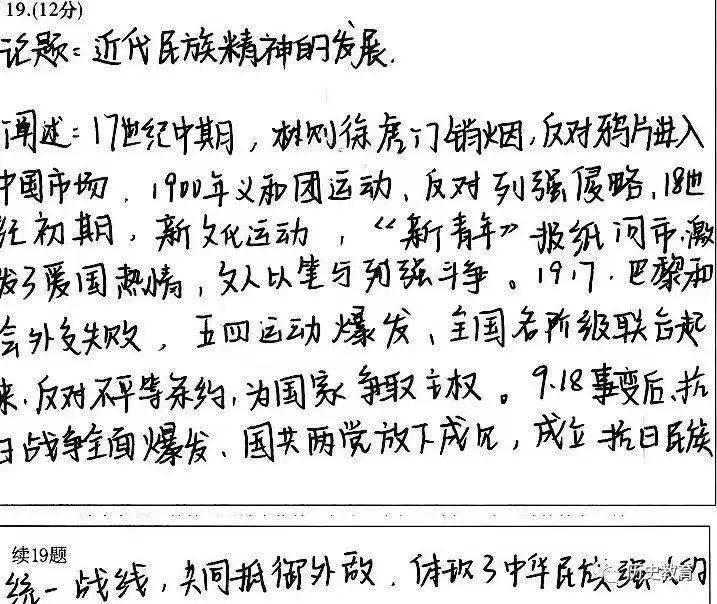 19.(12分)
论题:近代民族精神的发展.
阐述:17世纪中期,林则徐虎门销烟,反对鸦片进入
中国市场.1900年义和团运动、反对列强侵略.18世
纪初期,新文化运动,《新青年》报纸问市.激
发了爱国热情,文人以笔与列强斗争。1917.巴黎和
会外交失败,五四运动爆发、全国各阶级联合起
来.反对不平等条约,为国家争取主权。9.18事变后.抗
日战争全面爆发、国共两党放下成见,成立抗日民族
续19题
统一战线,共同抵御外敌.体现了中华民族强大的
历史教育